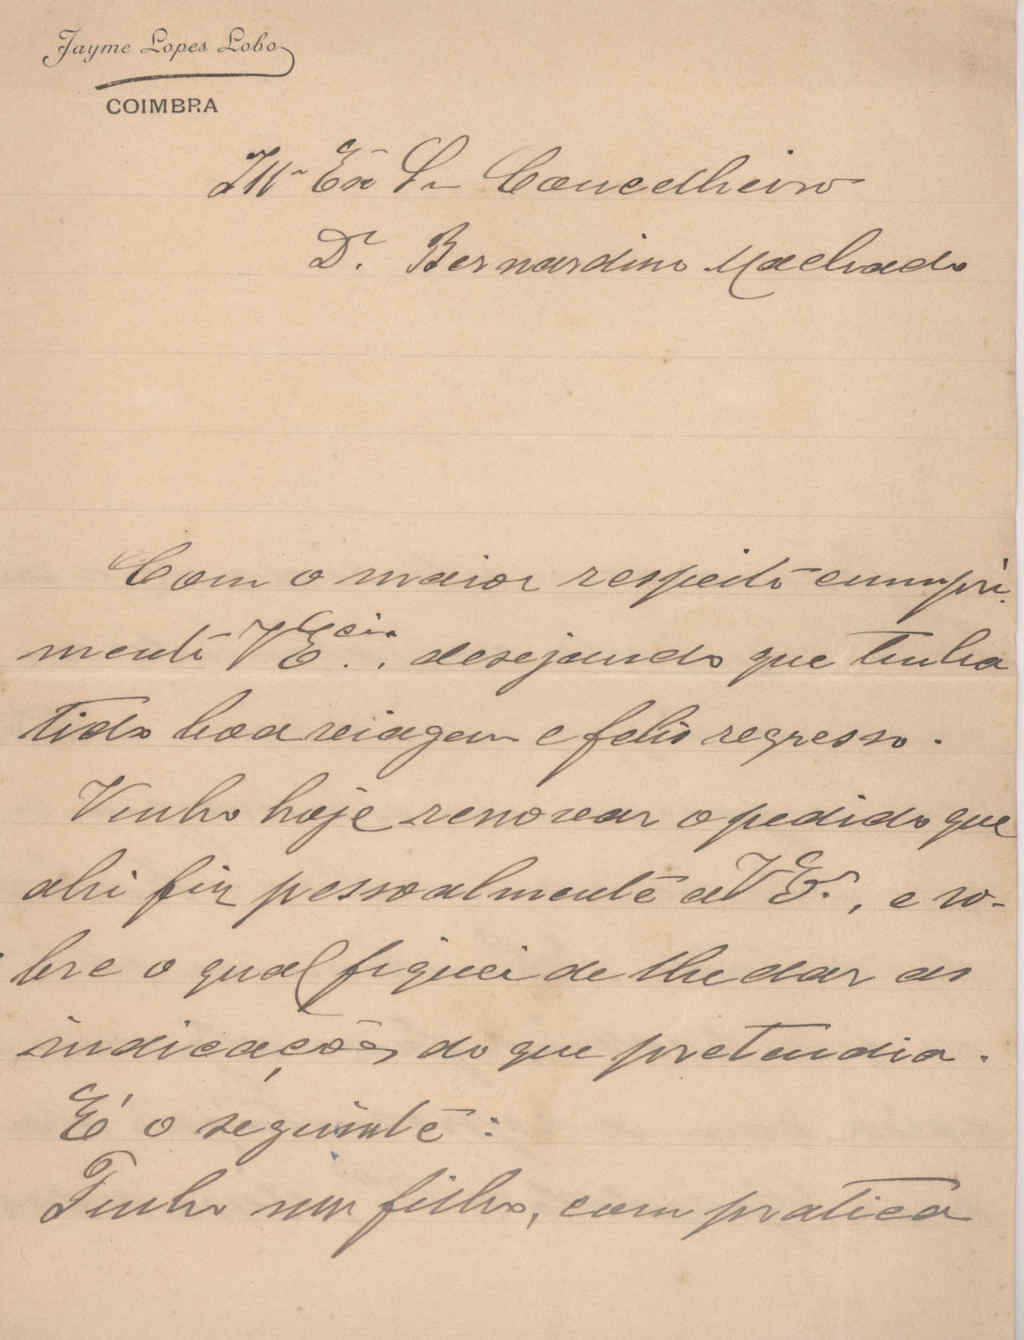 Jayme Lopes Lobo
COIMBRA
Illmo Exmo Sr Concelheiro
Dr. Bernardino Machado
Com o maior respeito cumpri-
mento V Ecia., desejando que tenha
tido boa viagem e feliz regresso.
Venho hoje renovar o pedido que
ahi fiz pessoalmente a V Ea., e so-
bre o qual fiquei de lhe dar as
indicações do que pretendia.
É o seguinte:
Tenho um filho, com pratica